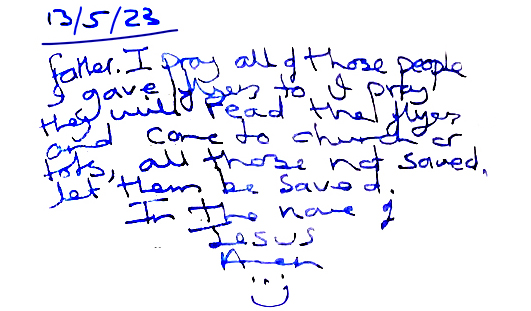 13/5/23
father. I pray all of those people
I gave flyers to I pray
they will read the flyers
and come to church or
tots, all those not saved.
let them be saved.
In the name of
Jesus
Amen